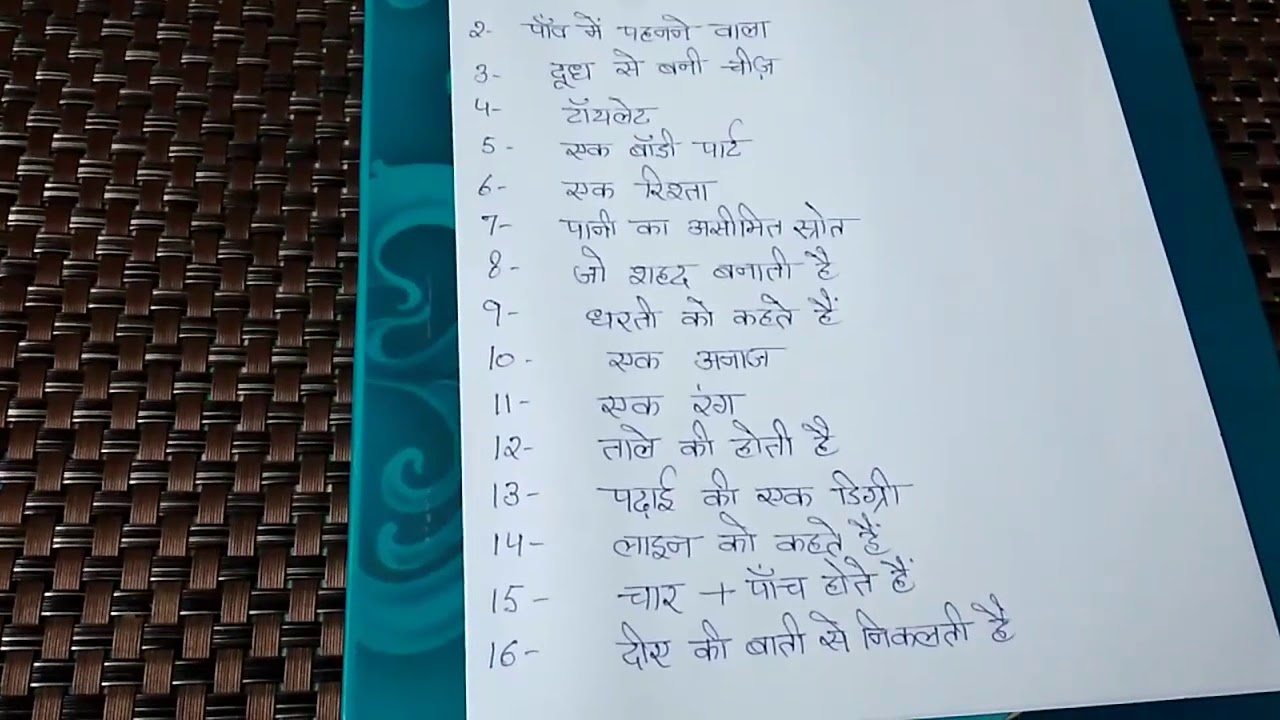 2- पाँव में पहनने वाला
3- दूध से बनी चीज़
4- टॉयलेट
5- एक बॉडी पार्ट
6- एक रिश्ता
7- पानी का असीमित स्रोत
8- जो शहद बनाती है
9- धरती को कहते हैं
10- एक अनाज
11- एक रंग
12- ताले की होती है
13- पढ़ाई की एक डिग्री
14- लाइन को कहते हैं
15- चार + पाँच होते हैं
16- दीए की बाती से निकलती है